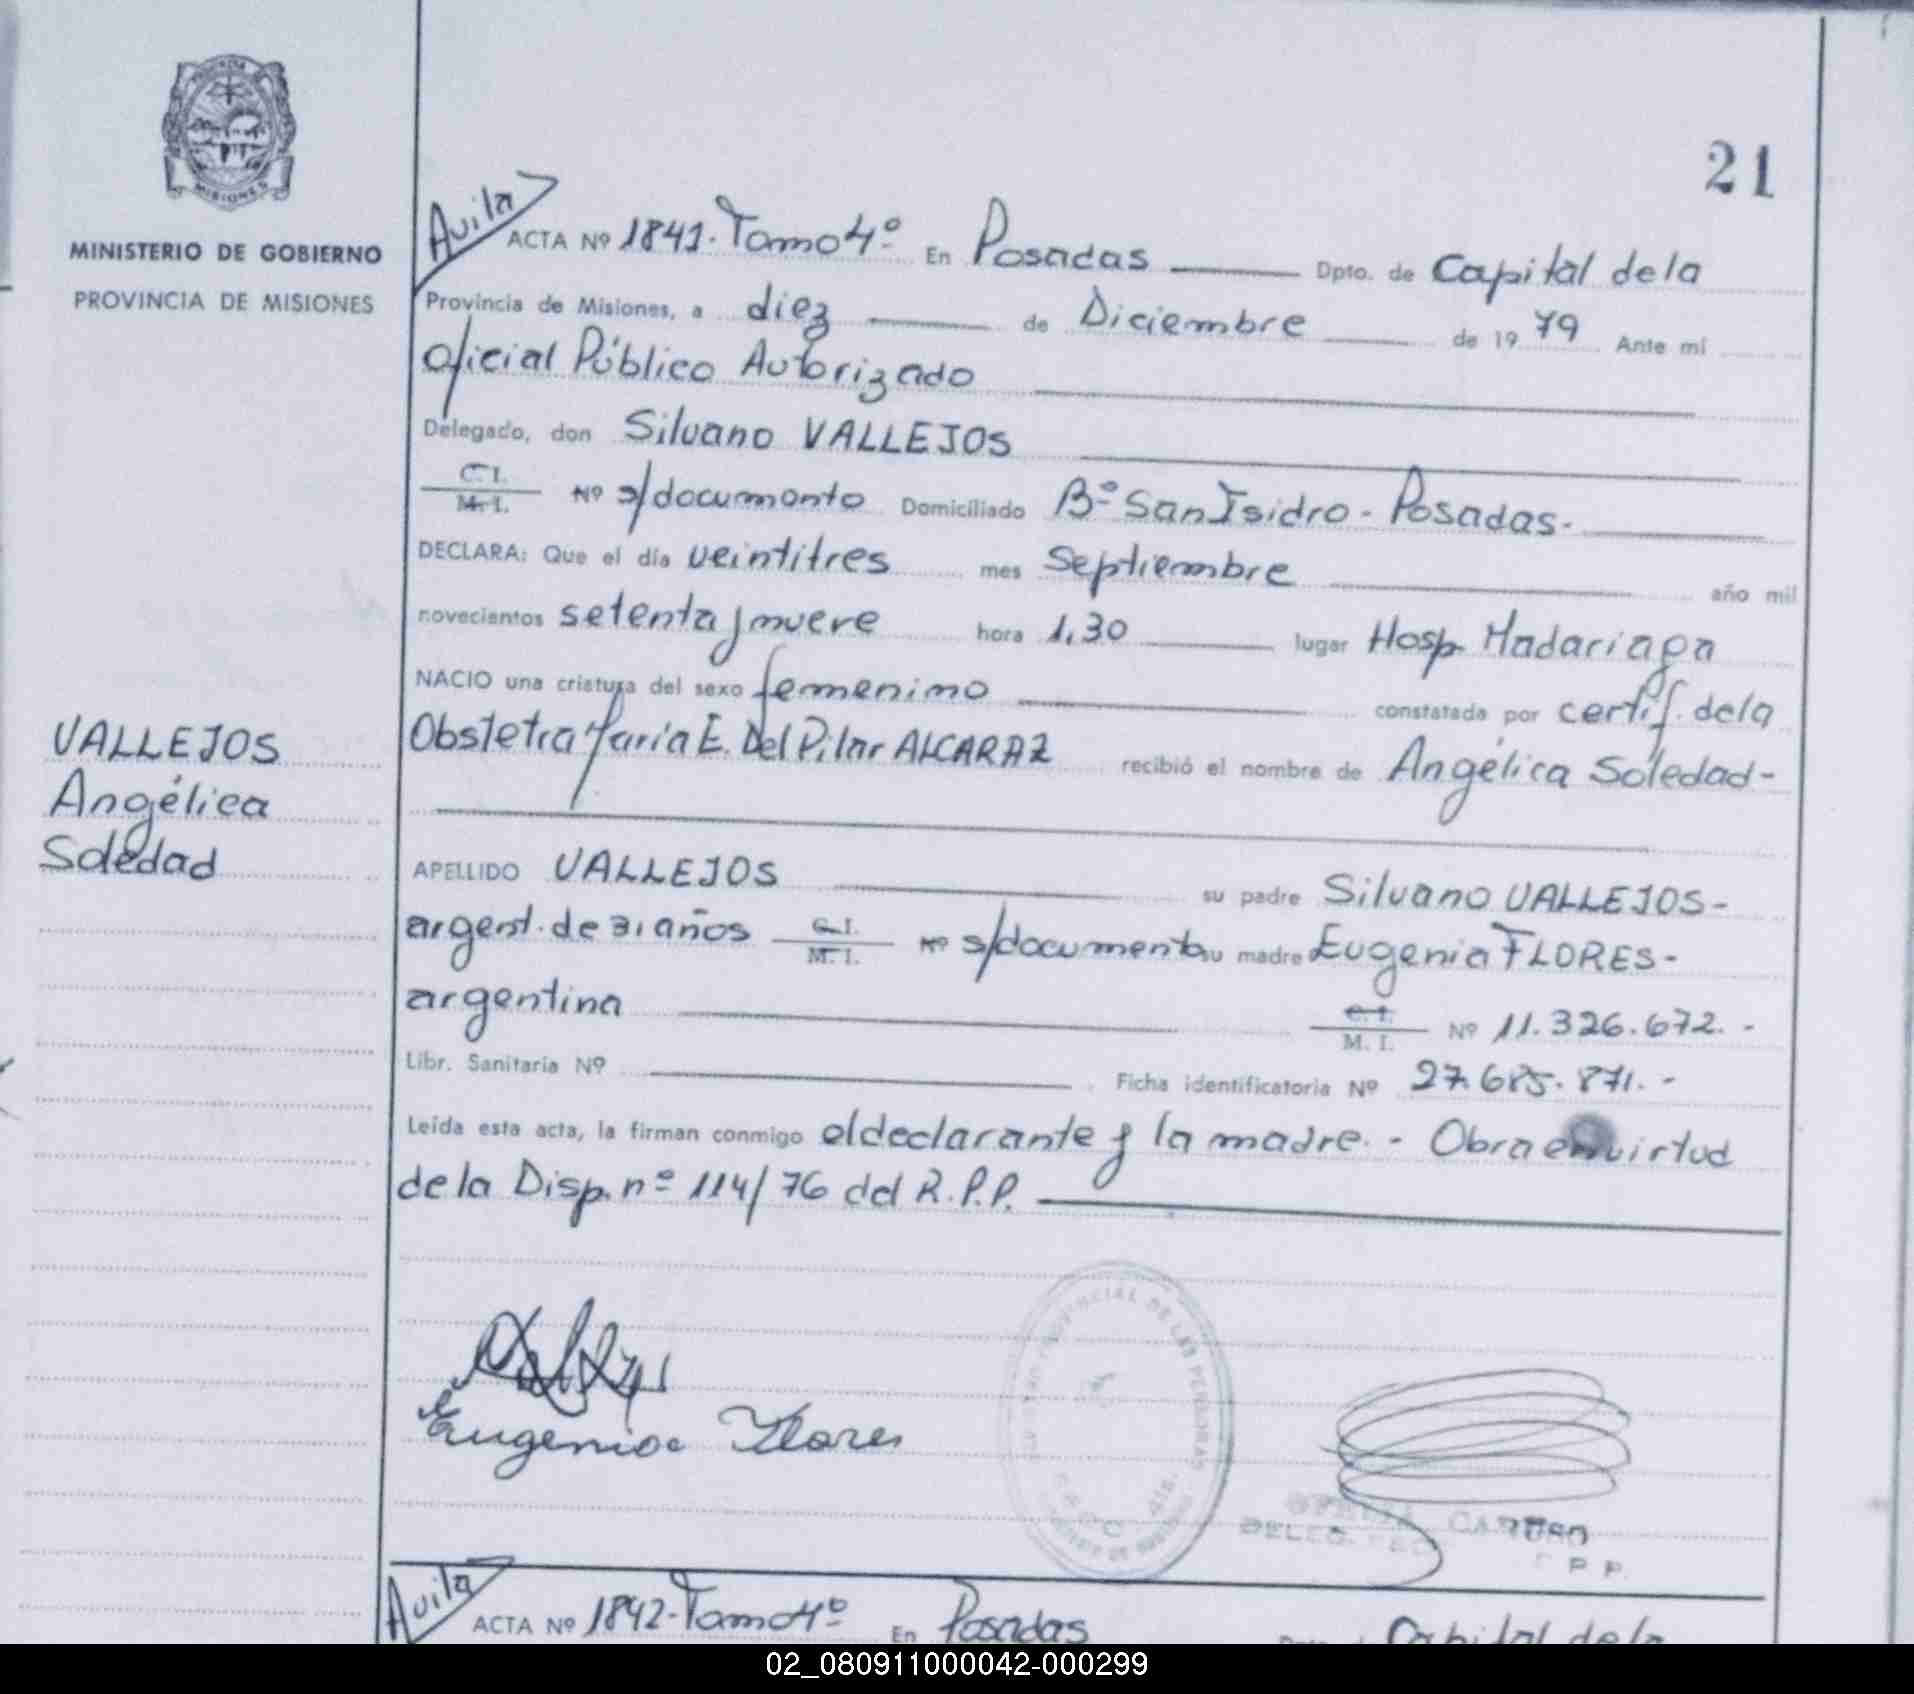 21
PROVINCIA DE
MISIONES
MINISTERIO DE GOBIERNO
PROVINCIA DE MISIONES
VALLEJOS
Angélica
Soledad
Avila
ACTA Nº 1841. Tomo 4º En Posadas Dpto. de Capital de la
Provincia de Misiones, a diez de Diciembre de 19 79 Ante mi
Oficial Público Autorizado
Delegado, don Silvano VALLEJOS
C. I.
M. I. Nº s/documento Domiciliado Bº San Isidro - Posadas.
DECLARA: Que el día veintitres mes Septiembre año mil
novecientos setenta y nueve hora 1,30 lugar Hosp. Madariaga
NACIO una criatura del sexo femenino constatada por certif. de la
Obstetra María E. Del Pilar ALCARAZ recibió el nombre de Angélica Soledad-
APELLIDO VALLEJOS su padre Silvano VALLEJOS-
argent. de 31 años C. I.
M. I. Nº s/documento su madre Eugenia FLORES-
argentina C. I.
M. I. Nº 11.326.672. -
Libr. Sanitaria Nº Ficha identificatoria Nº 27.685.871. -
Leída esta acta, la firman conmigo el declarante y la madre. - Obra en virtud
de la Disp. nº 114/76 del R.P.P.
Eugenia Flores
PROVINCIAL DE LAS PERSONAS
CARUSO
DELEG.
P P
Avila
ACTA Nº 1842-Tomo 4º En Posadas Capital de la
02_080911000042-000299